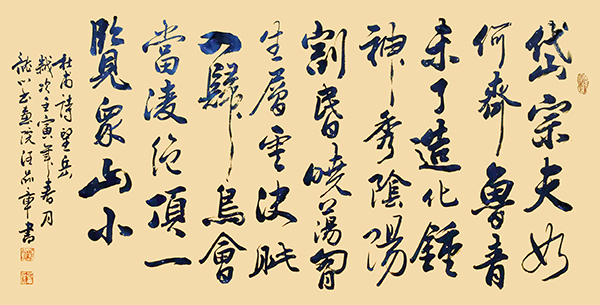 岱宗夫如
何齊魯青
未了造化鍾
神秀陰陽
割昏曉蕩胸
生層雲決眥
入歸鳥會
當凌絕頂一
覽眾山小
杜甫詩望岳
歲次壬寅年春月
書畫院汪品章書